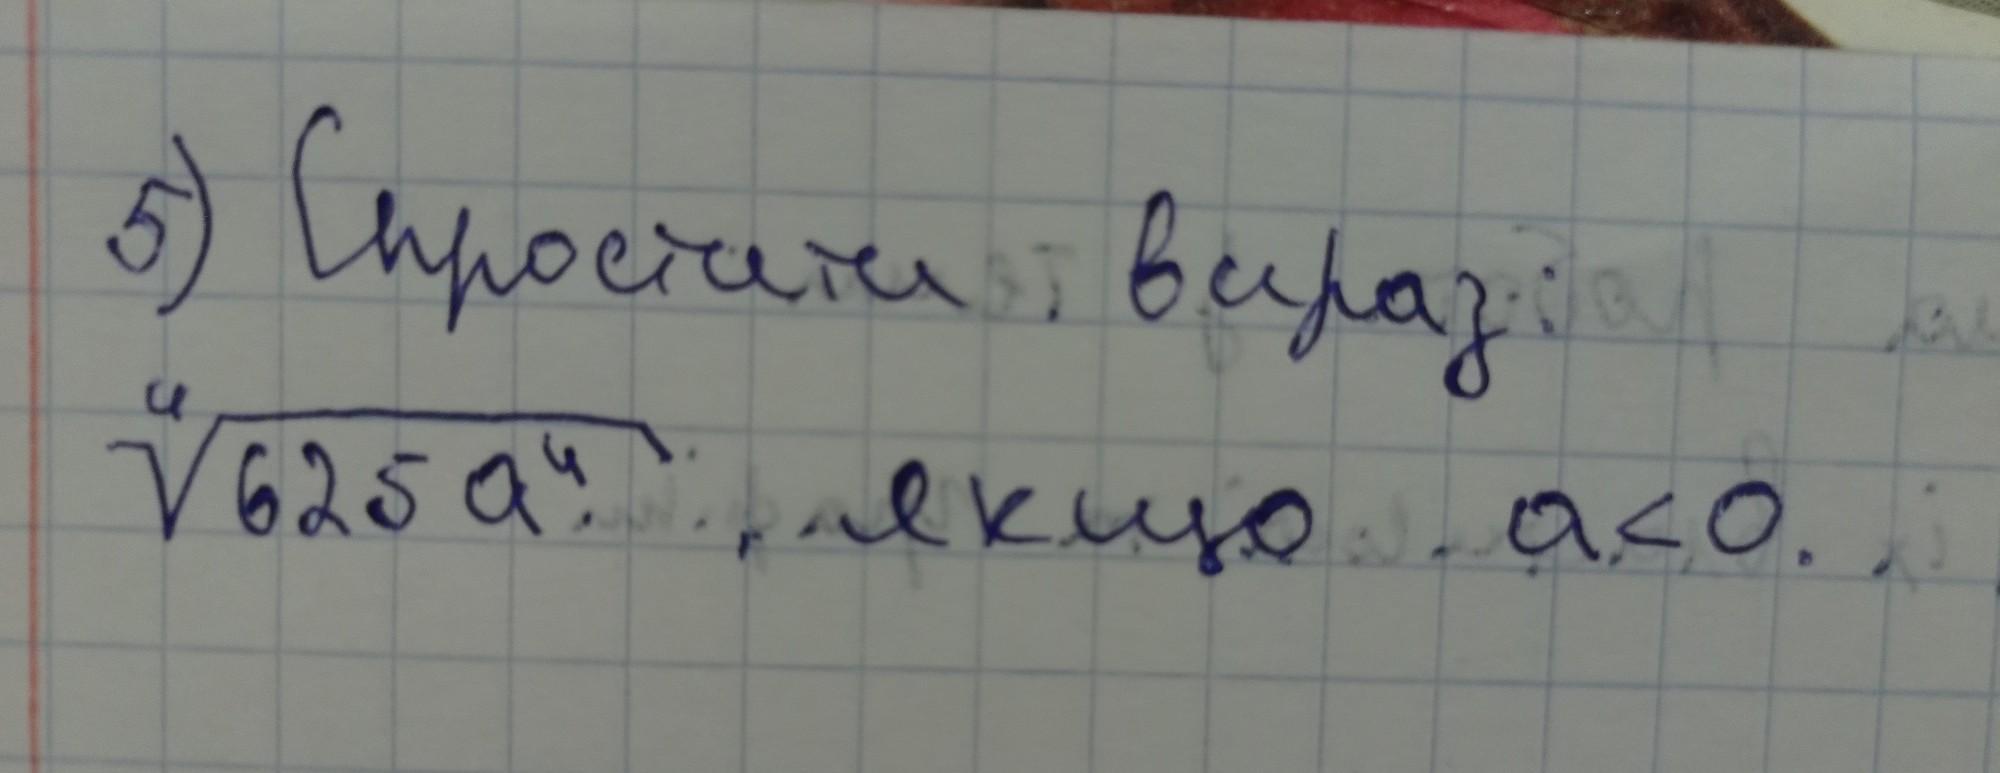 5) Спростити вираз:
⁴√625a⁴, якщо a<0.